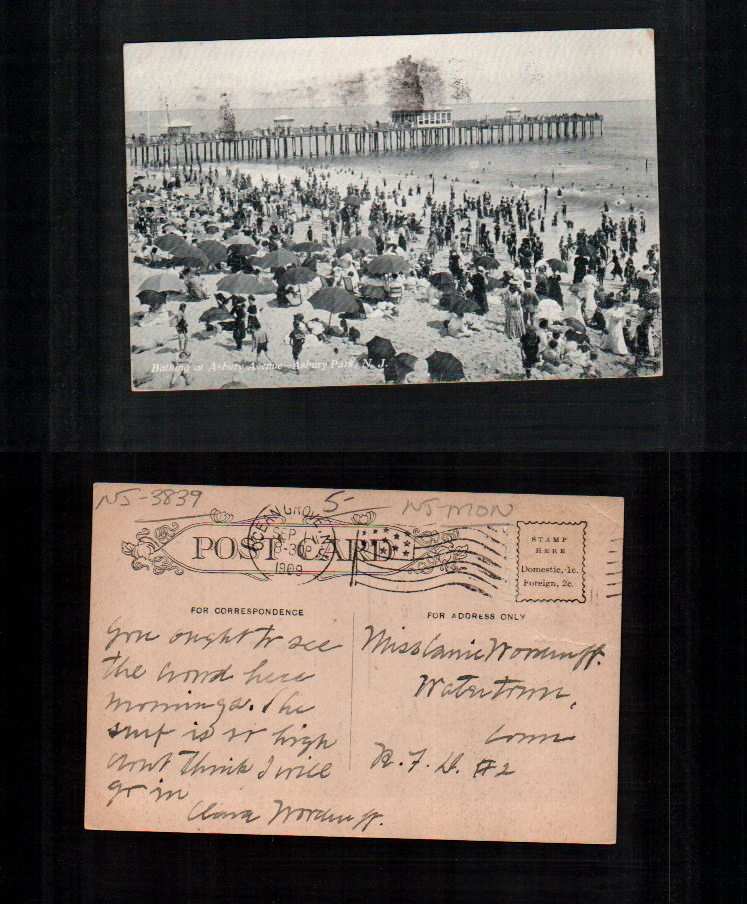 Bathing at Asbury Avenue—Asbury Park, N. J.
NJ-3839
5-
NJ-MON
POST CARD
OCEAN GROVE N.J.
SEP 1
8-30P
1909
STAMP
HERE
Domestic, 1c.
Foreign, 2c.
FOR CORRESPONDENCE
FOR ADDRESS ONLY
You ought to see
the crowd here
mornings. The
surf is so high
dont think I will
go in
Clara Woodruff.
Miss Carrie Woodruff.
Watertown,
Conn
R. F. D. #2